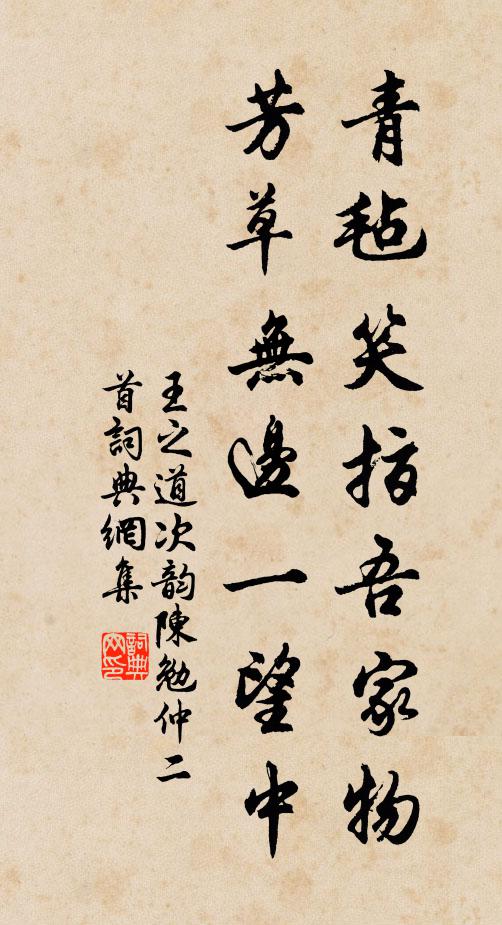 青氈笑指吾家物
芳草無邊一望中
王之道次韵陳勉仲二
首詞典網集
詞典
网印